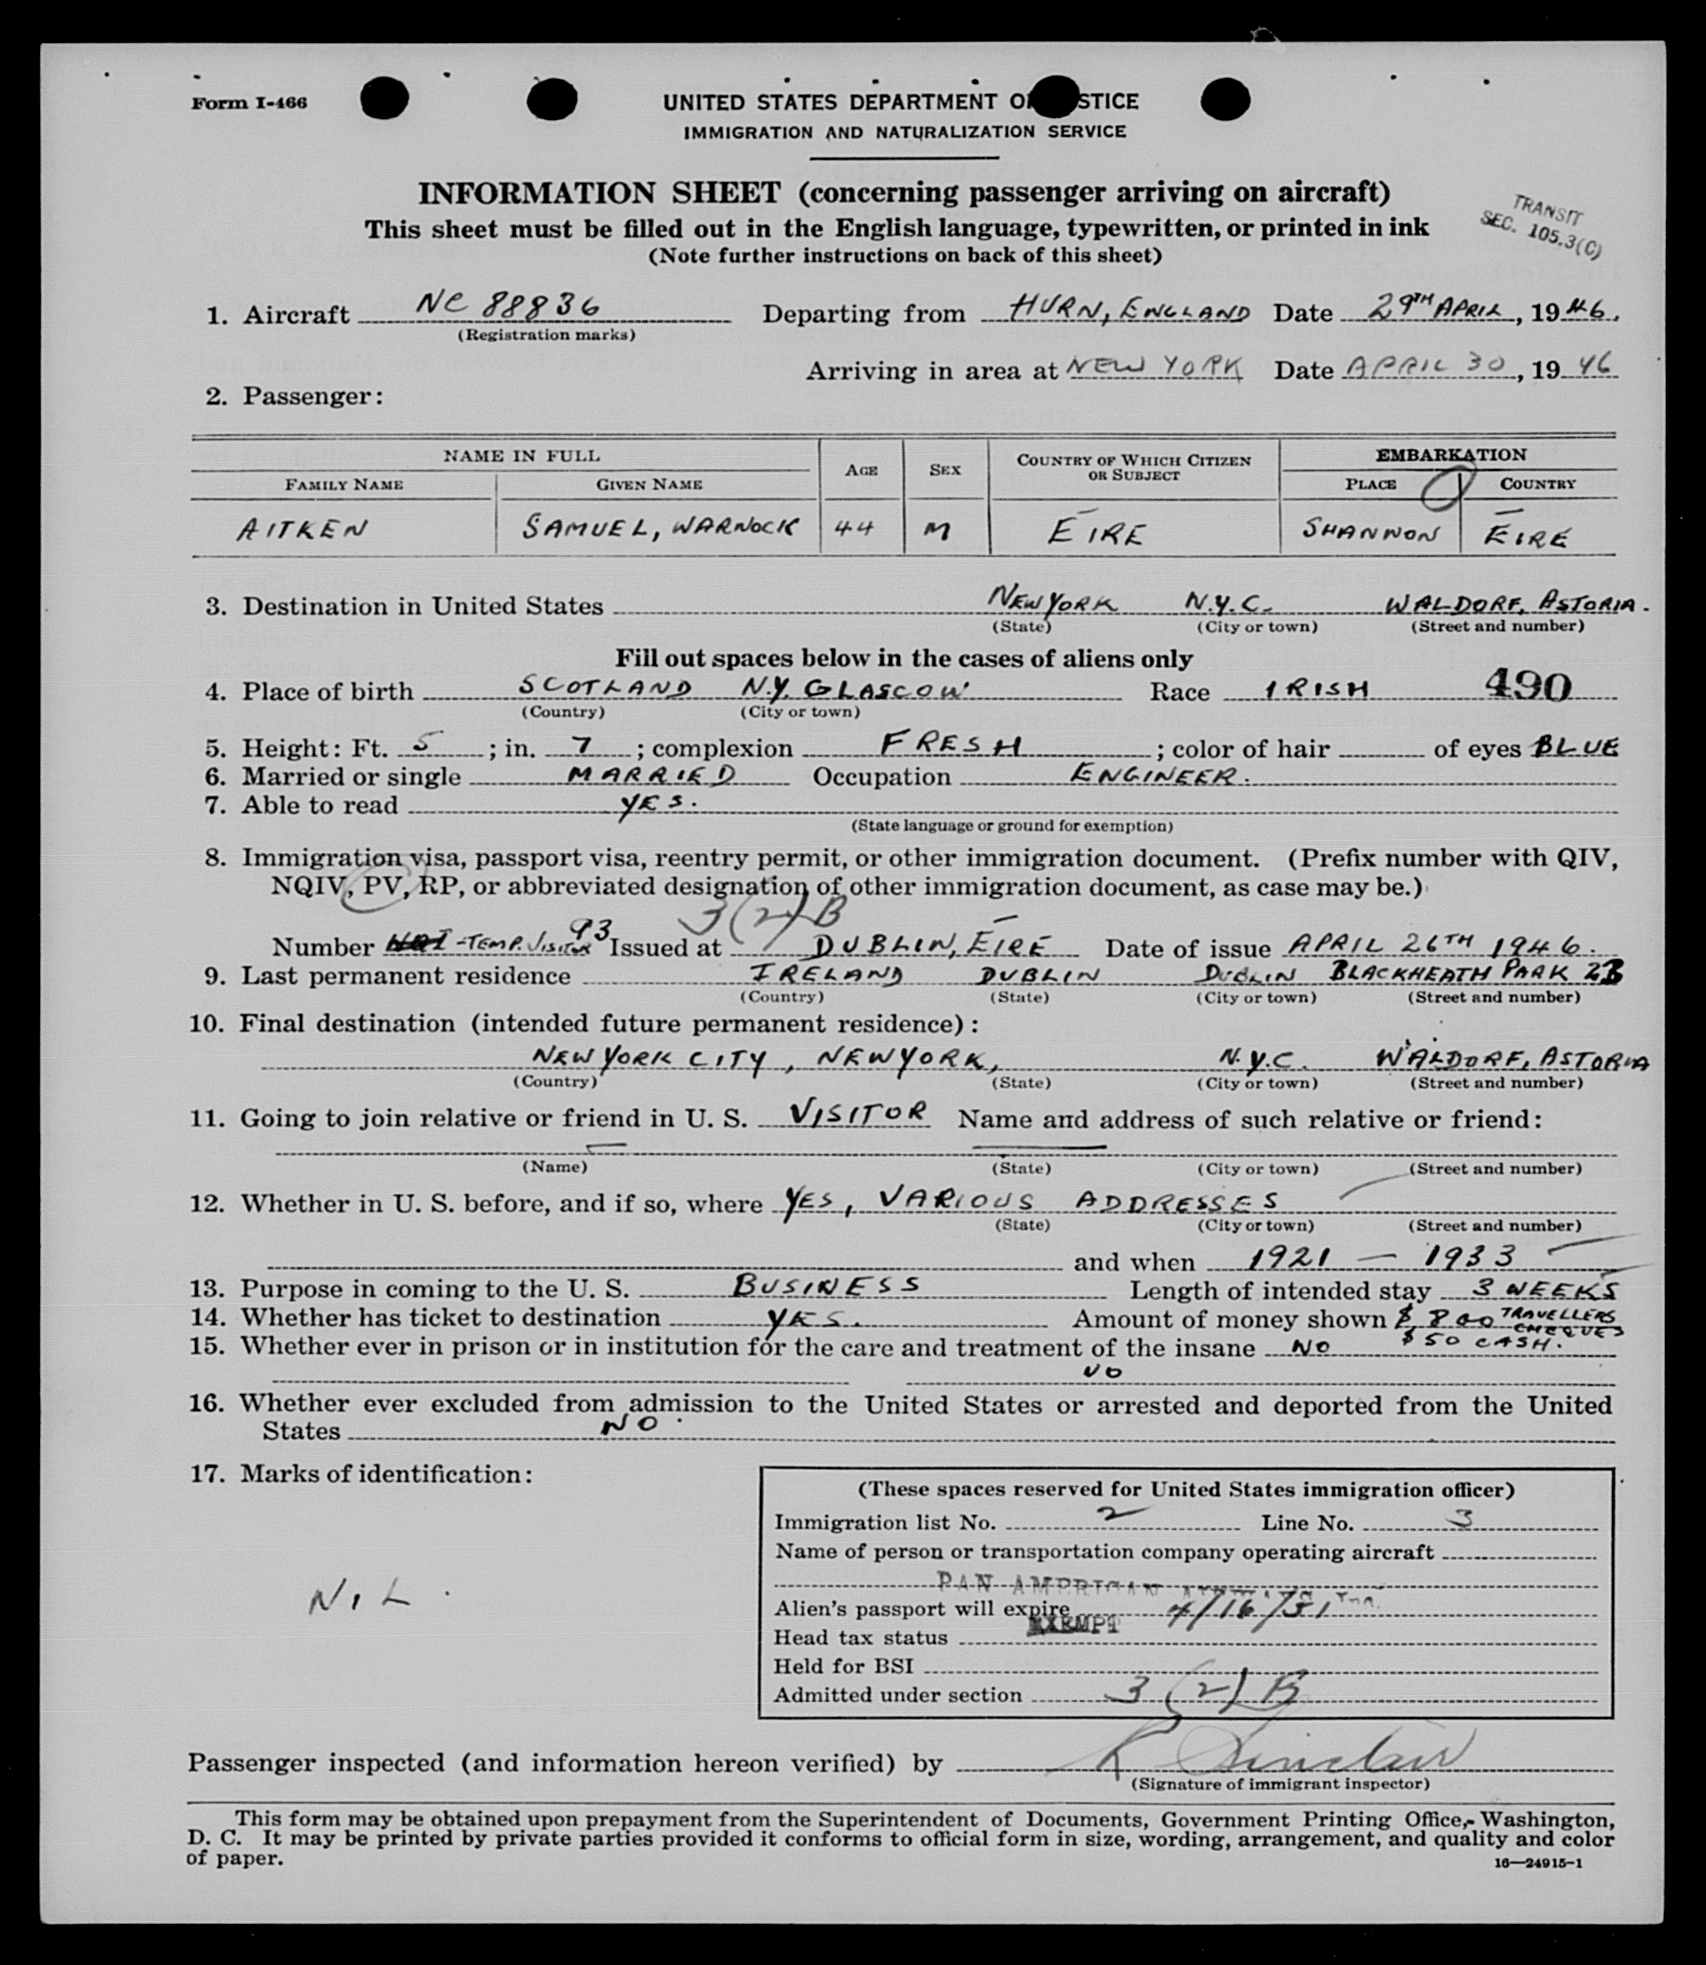 Form I-466
UNITED STATES DEPARTMENT OF JUSTICE
IMMIGRATION AND NATURALIZATION SERVICE
INFORMATION SHEET (concerning passenger arriving on aircraft)
This sheet must be filled out in the English language, typewritten, or printed in ink
(Note further instructions on back of this sheet)
TRANSIT
SEC. 105.3(C)
1. Aircraft NC 88836 Departing from HURN, ENGLAND Date 29TH APRIL, 1946.
(Registration marks)
Arriving in area at NEW YORK Date APRIL 30, 1946
2. Passenger:
NAME IN FULL AGE SEX COUNTRY OF WHICH CITIZEN OR SUBJECT EMBARKATION
FAMILY NAME GIVEN NAME PLACE COUNTRY
AITKEN SAMUEL, WARNOCK 44 M EIRE SHANNON EIRE
3. Destination in United States NEW YORK N.Y.C. WALDORF, ASTORIA.
(State) (City or town) (Street and number)
Fill out spaces below in the cases of aliens only
4. Place of birth SCOTLAND N.Y. GLASCOW Race IRISH 490
(Country) (City or town)
5. Height: Ft. 5; in. 7; complexion FRESH; color of hair of eyes BLUE
6. Married or single MARRIED Occupation ENGINEER.
7. Able to read YES.
(State language or ground for exemption)
8. Immigration visa, passport visa, reentry permit, or other immigration document. (Prefix number with QIV,
NQIV, PV, RP, or abbreviated designation of other immigration document, as case may be.)
3(2)B
Number -TEMP. VISITOR 93 Issued at DUBLIN, EIRE Date of issue APRIL 26TH 1946.
9. Last permanent residence IRELAND DUBLIN DUBLIN BLACKHEATH PARK 2B
(Country) (State) (City or town) (Street and number)
10. Final destination (intended future permanent residence):
NEW YORK CITY, NEW YORK, N.Y.C. WALDORF, ASTORIA
(Country) (State) (City or town) (Street and number)
11. Going to join relative or friend in U. S. VISITOR Name and address of such relative or friend:
(Name) (State) (City or town) (Street and number)
12. Whether in U. S. before, and if so, where YES, VARIOUS ADDRESSES
(State) (City or town) (Street and number)
and when 1921 — 1933
13. Purpose in coming to the U. S. BUSINESS Length of intended stay 3 WEEKS
14. Whether has ticket to destination YES. Amount of money shown $ 800 TRAVELLERS CHEQUES
15. Whether ever in prison or in institution for the care and treatment of the insane NO $50 CASH.
NO
16. Whether ever excluded from admission to the United States or arrested and deported from the United
States NO.
17. Marks of identification:
NIL.
(These spaces reserved for United States immigration officer)
Immigration list No. 2 Line No. 3
Name of person or transportation company operating aircraft
PAN AMERICAN AIRWAYS Inc.
Alien's passport will expire 4/16/51
Head tax status EXEMPT
Held for BSI
Admitted under section 3(2)B
Passenger inspected (and information hereon verified) by R Sinclair
(Signature of immigrant inspector)
This form may be obtained upon prepayment from the Superintendent of Documents, Government Printing Office, Washington,
D. C. It may be printed by private parties provided it conforms to official form in size, wording, arrangement, and quality and color
of paper.
16—24915-1